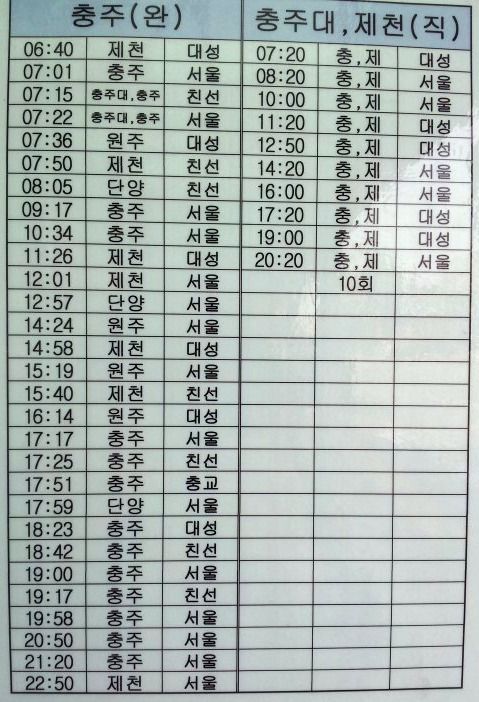 충주(완)
06:40 제천 대성
07:01 충주 서울
07:15 충주대,충주 친선
07:22 충주대,충주 서울
07:36 원주 대성
07:50 제천 친선
08:05 단양 친선
09:17 충주 서울
10:34 충주 서울
11:26 제천 대성
12:01 제천 서울
12:57 단양 서울
14:24 원주 서울
14:58 제천 대성
15:19 원주 서울
15:40 제천 친선
16:14 원주 대성
17:17 충주 서울
17:25 충주 친선
17:51 충주 충교
17:59 단양 서울
18:23 충주 대성
18:42 충주 친선
19:00 충주 서울
19:17 충주 친선
19:58 충주 서울
20:50 충주 서울
21:20 충주 서울
22:50 제천 서울
충주대,제천(직)
07:20 충,제 대성
08:20 충,제 서울
10:00 충,제 서울
11:20 충,제 대성
12:50 충,제 대성
14:20 충,제 서울
16:00 충,제 서울
17:20 충,제 대성
19:00 충,제 대성
20:20 충,제 서울
10회